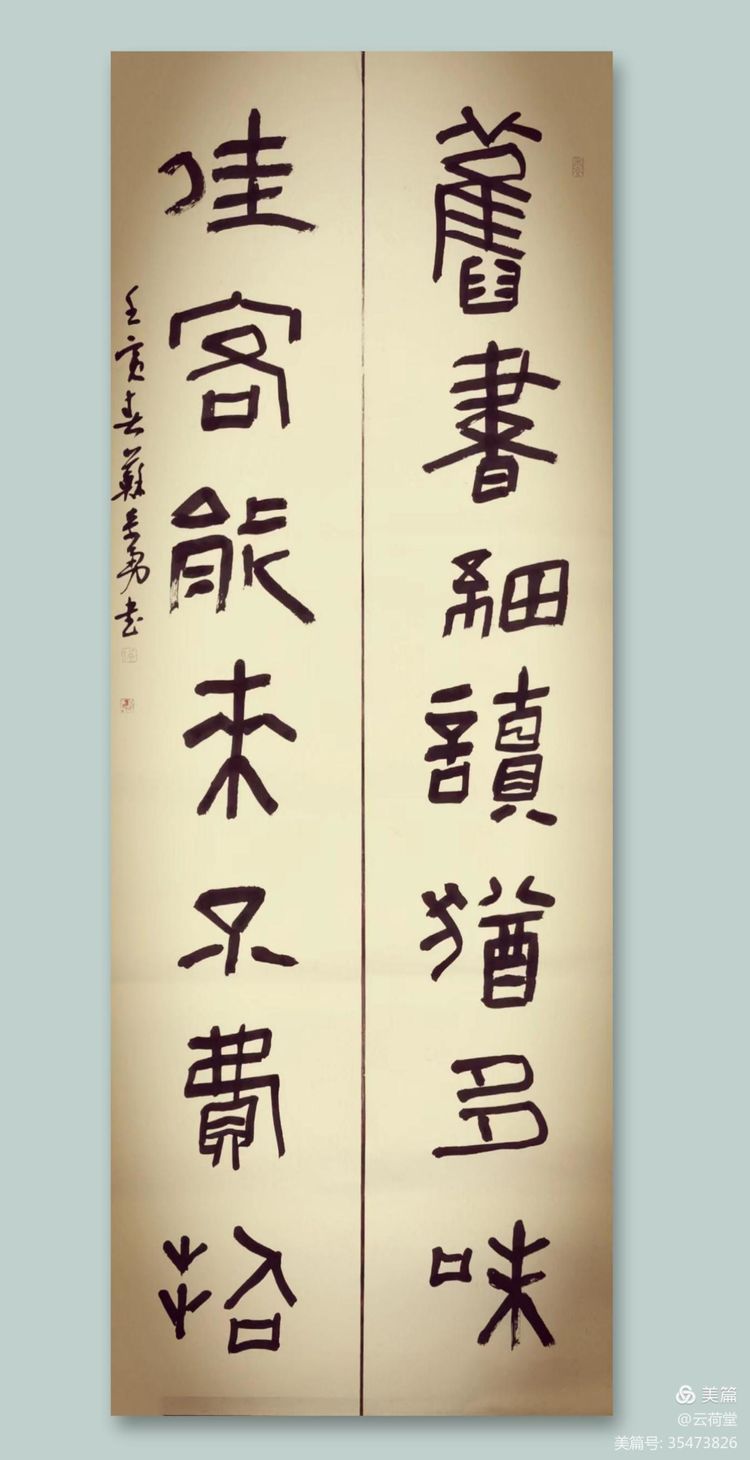 舊書細讀猶多味
佳客能來不費招
壬寅春蘇長勇书
美篇
@云荷堂
美篇号: 35473826